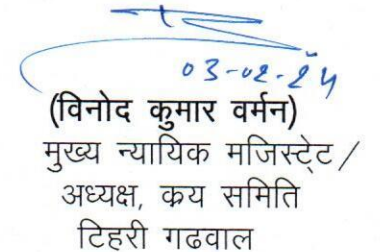 03-02-24
(विनोद कुमार वर्मन)
मुख्य न्यायिक मजिस्ट्रेट /
अध्यक्ष, क्रय समिति
टिहरी गढवाल